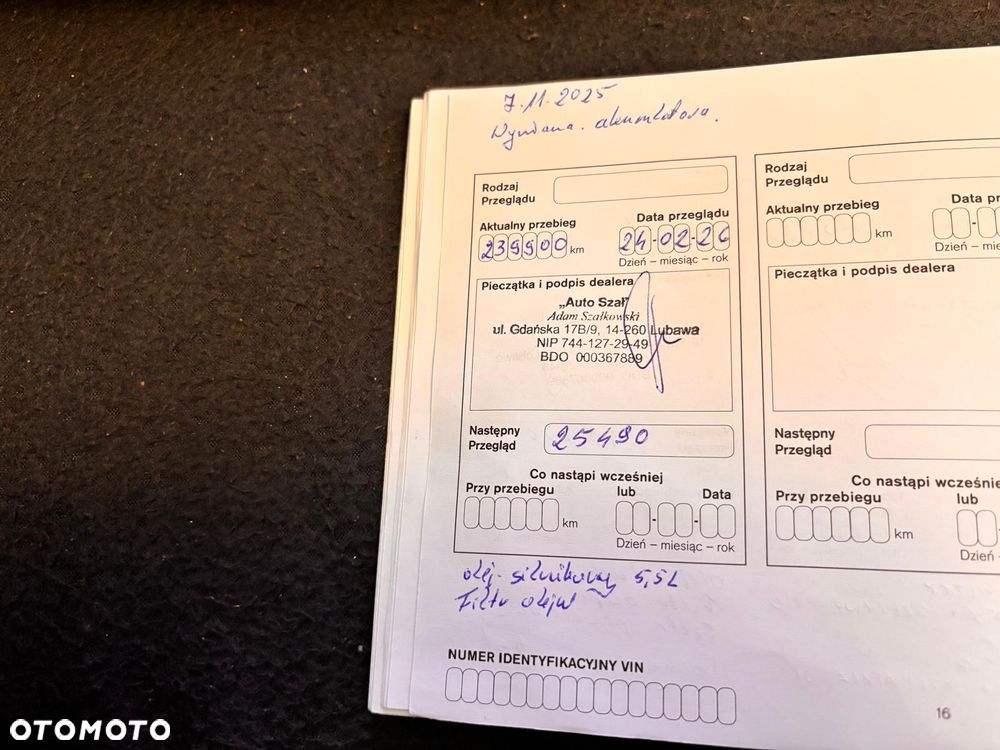 7.11.2025
Wymiana akumulatora.
Rodzaj
Przeglądu
Aktualny przebieg
239900 km
Data przeglądu
24-02-26
Dzień – miesiąc – rok
Pieczątka i podpis dealera
„Auto Szał”
Adam Szałkowski
ul. Gdańska 17B/9, 14-260 Lubawa
NIP 744-127-29-49
BDO 000367889
Następny
Przegląd
25490
Co nastąpi wcześniej
Przy przebiegu
lub
Data
km
Dzień – miesiąc – rok
olej silnikowy 5,5L
Filtr oleju
NUMER IDENTYFIKACYJNY VIN
Rodzaj
Przeglądu
Aktualny przebieg
km
Data pr
Dzień – mie
Pieczątka i podpis dealera
Następny
Przegląd
Co nastąpi wcześnie
Przy przebiegu
lub
km
Dzień
16
OTOMOTO